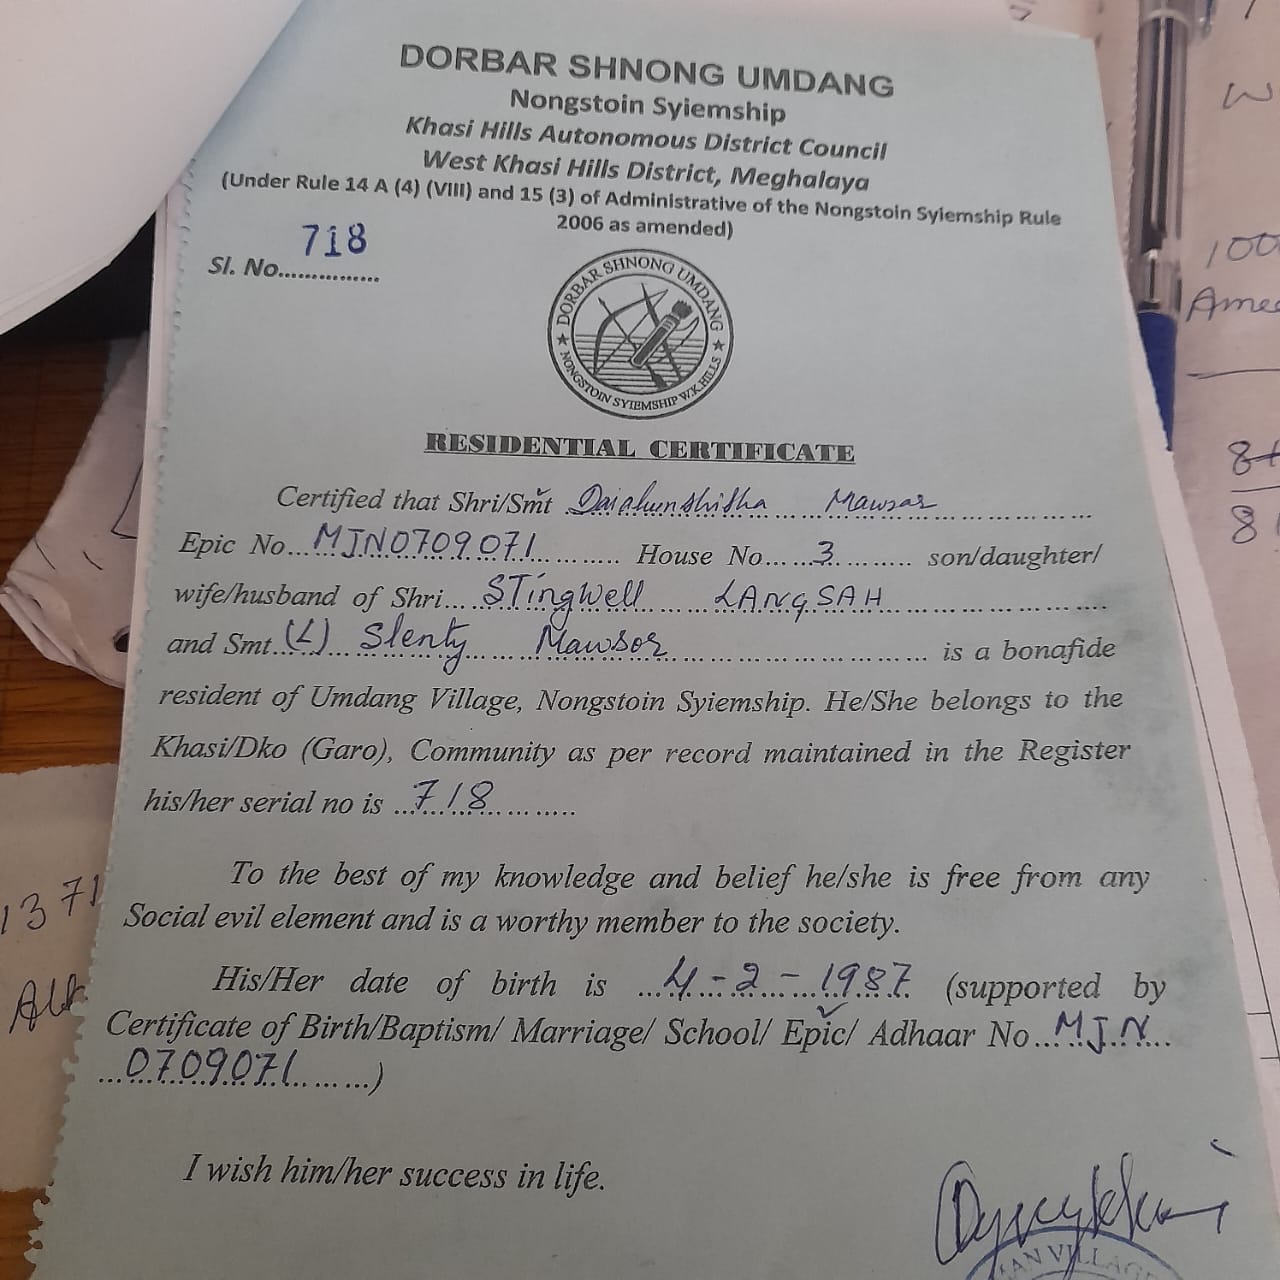 DORBAR SHNONG UMDANG
Nongstoin Syiemship
Khasi Hills Autonomous District Council
West Khasi Hills District, Meghalaya
(Under Rule 14 A (4) (VIII) and 15 (3) of Administrative of the Nongstoin Syiemship Rule
2006 as amended)
Sl. No............... 718
DORBAR SHNONG UMDANG
★ NONGSTOIN SYIEMSHIP W.K.HILLS ★
RESIDENTIAL CERTIFICATE
Certified that Shri/Smt Daiahunshisha Mawsor
Epic No... MJN0709071 ........... House No... 3 ........... son/daughter/
wife/husband of Shri... STingwell LANGSAH
and Smt. (L) Slenty Mawsor ........... is a bonafide
resident of Umdang Village, Nongstoin Syiemship. He/She belongs to the
Khasi/Dko (Garo), Community as per record maintained in the Register
his/her serial no is ..718...........
To the best of my knowledge and belief he/she is free from any
Social evil element and is a worthy member to the society.
His/Her date of birth is ...4-2-1987 (supported by
Certificate of Birth/Baptism/ Marriage/ School/ Epic/ Adhaar No...MJN...
...0709071.........)
I wish him/her success in life.
VILLAGE
1371
100
8